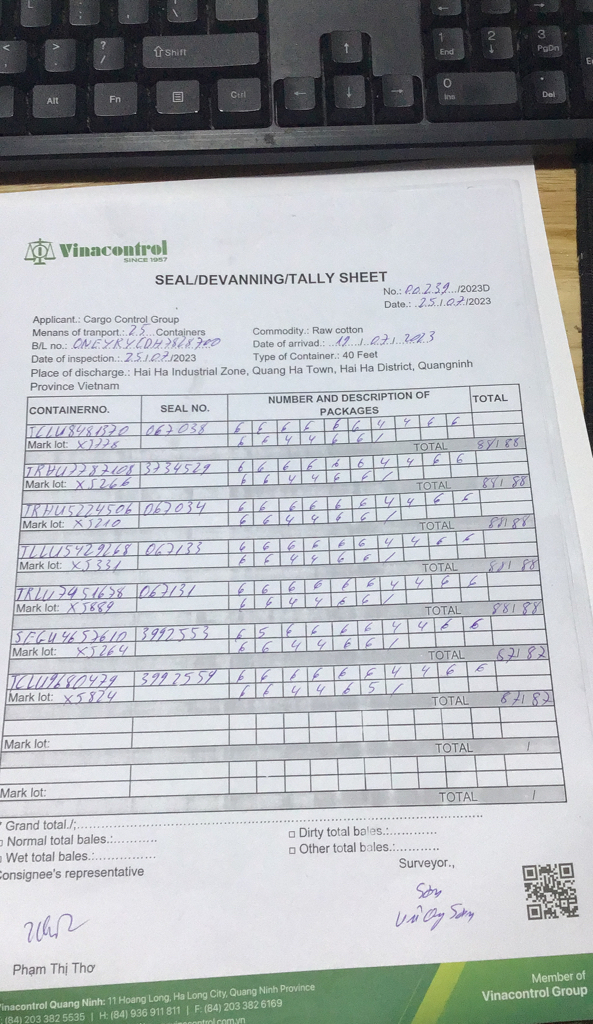 < ,
> .
? /
⇧ Shift
↑
1 End
2 ↓
3 PgDn
Alt
Fn
Ctrl
← ↓ →
0 Ins
. Del
Vinacontrol
SINCE 1957
SEAL/DEVANNING/TALLY SHEET
No.: 00.239../2023D
Date.: .25./.07./2023
Applicant.: Cargo Control Group
Menans of tranport.: 25 Containers
Commodity.: Raw cotton
B/L no.:
Date of arrivad.: .19./.07./.2023
Date of inspection.: 25/07/2023
Type of Container.: 40 Feet
Place of discharge.: Hai Ha Industrial Zone, Quang Ha Town, Hai Ha District, Quangninh
Province Vietnam
CONTAINERNO. SEAL NO. NUMBER AND DESCRIPTION OF PACKAGES TOTAL
067038 6 6 6 6 6 6 4 4 6 6
Mark lot: X5778 6 6 4 4 6 6 /
TOTAL 88/88
TRHU7787108 3734529 6 6 6 6 6 6 4 4 6 6
Mark lot: X5266 6 6 4 4 6 6 /
TOTAL 88/88
TRHU5224506 067034 6 6 6 6 6 6 4 4 6 6
Mark lot: X5210 6 6 4 4 6 6 /
TOTAL 88/88
TLLU5429268 067133 6 6 6 6 6 6 4 4 6 6
Mark lot: X5331 6 6 4 4 6 6 /
TOTAL 88/88
TRLU7451678 067131 6 6 6 6 6 6 4 4 6 6
Mark lot: X5889 6 6 4 4 6 6 /
TOTAL 88/88
SEGU4657610 3992553 6 5 6 6 6 6 4 4 6 6
Mark lot: X5264 6 6 4 4 6 6 /
TOTAL 87/87
TCLU9680479 3992559 6 6 6 6 6 6 4 4 6 6
Mark lot: X5874 6 6 4 4 6 5 /
TOTAL 87/87
Mark lot:
TOTAL /
Mark lot:
TOTAL /
* Grand total./:
□ Normal total bales.:
□ Dirty total bales.:
□ Wet total bales.:
□ Other total bales.:
Consignee's representative
Surveyor.,
Sơn
Vương Sơn
Phạm Thị Thơ
Vinacontrol Quang Ninh: 11 Hoang Long, Ha Long City, Quang Ninh Province
(84) 203 382 5535 | H: (84) 936 911 811 | F: (84) 203 382 6169
Member of
Vinacontrol Group